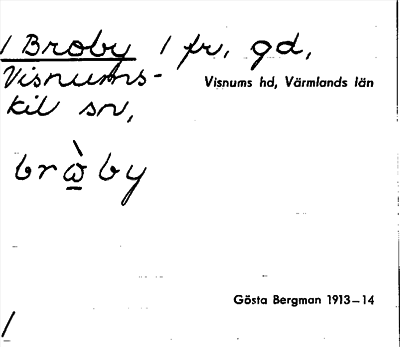 / Broby / fr, gd,
Visnums-
kil sn,
Visnums hd, Värmlands län
brὼ̲by
Gösta Bergman 1913–14
/